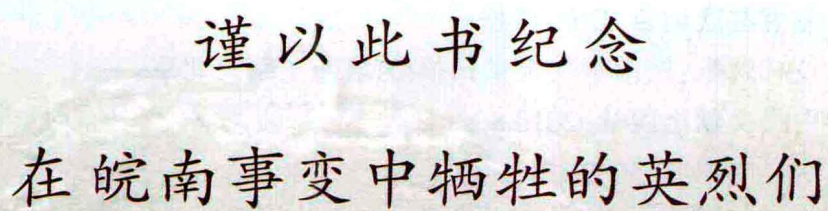 谨以此书纪念
在皖南事变中牺牲的英烈们